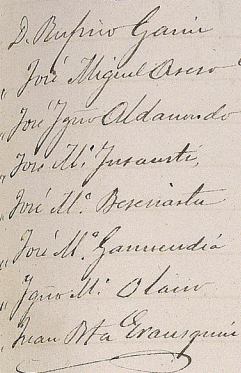 D. Rufino Garin
" José Miguel Oreso
" José Ygno Aldanondo
" José Mª Insausti,
" José Mª
" José Mª Garmendia
" Ygno Mª Olano
" Juan Bta Erausquin